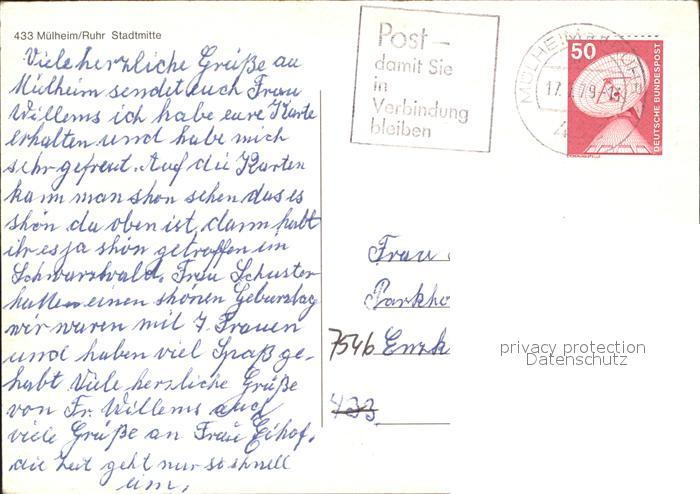 433 Mülheim/Ruhr Stadtmitte
Viele herzliche Grüße au
Mülheim sendet euch Frau
Willems ich habe eure Karte
erhalten und habe mich
sehr gefreut. Auf die Karten
kann man shon sehen das es
shön da oben ist, dann habt
ihr es ja shön getroffen im
Schwarzwald. Frau Schuster
hatte einen shönen Geburstag
wir waren mit 7 Frauen
und haben viel Spaß ge-
habt Viele herzliche Grüße
von Fr. Willems auch
viele Grüße an Frau Eihof.
die Zeit geht nur so shnell
um,
Post –
damit Sie
in
Verbindung
bleiben
MÜLHEIM
17. 79-
50
DEUTSCHE BUNDESPOST
Frau
Parkho
7546 Enzk
433
privacy protection
Datenschutz